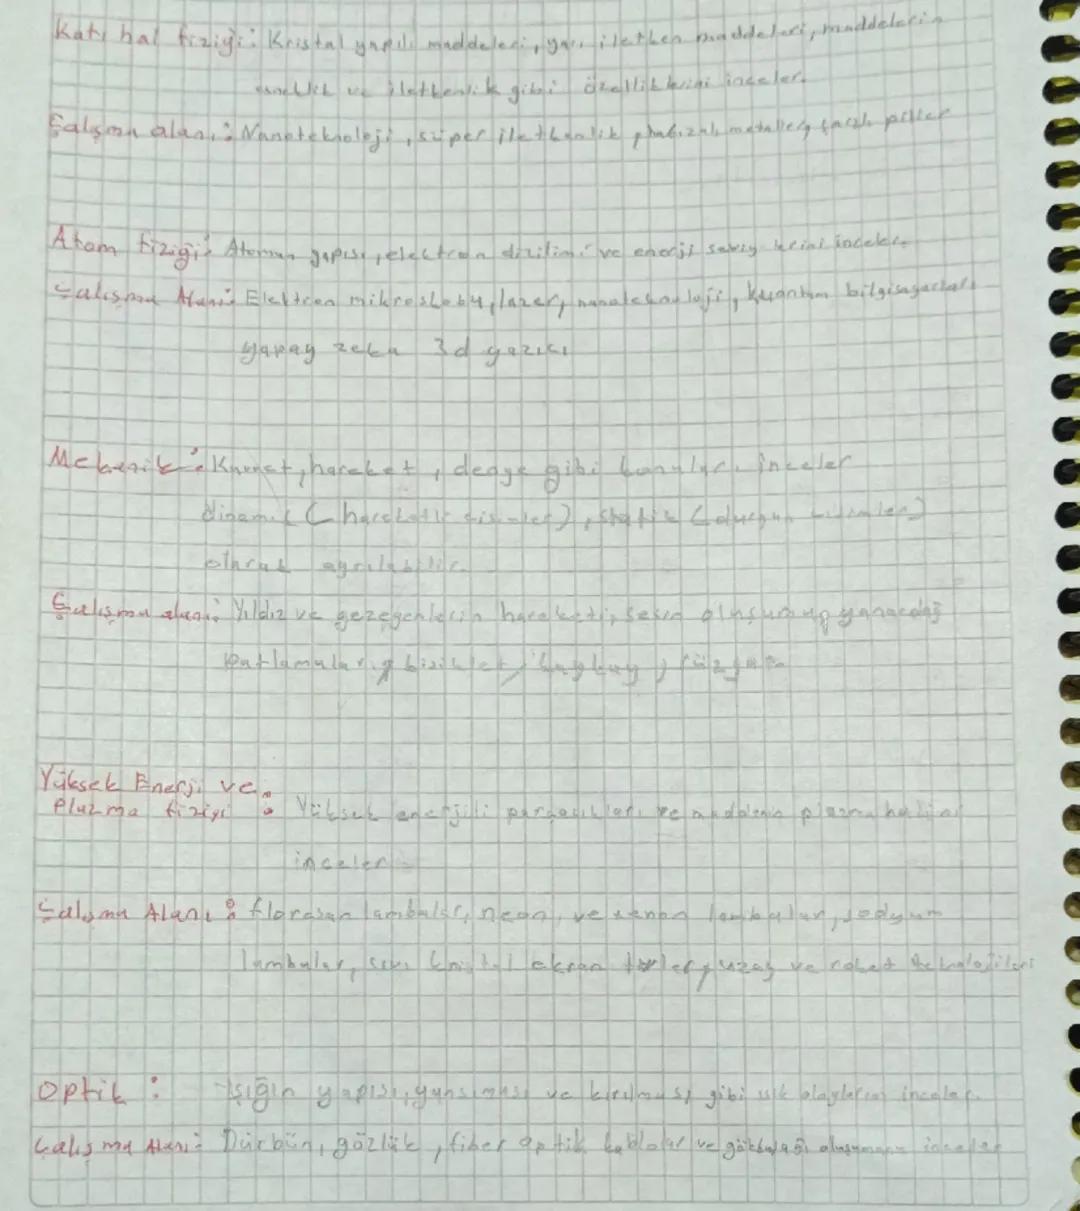 Katı hal fiziği: Kristal yapılı maddeleri, yarı iletken maddeleri, maddelerin
esneklik ve iletkenlik gibi özelliklerini inceler.
Çalışma alanı: Nanoteknoloji, süper iletkenlik metaller, şarzlı piller
Atom fiziği: Atomun yapısı, electron dizilimi ve enerji seviyelerini inceler.
Çalışma Alanı: Elektron mikroskobu, lazer, nanoteknoloji, kuantum bilgisayarları
yapay zeka 3d yazıcı
Mekanik: Kuvvet, hareket, denge gibi konuları inceler
dinamik (hareketli cisimler), statik (durgun cisimler)
olarak ayrılabilir.
Çalışma alanı: Yıldız ve gezegenlerin hareketi, sesin oluşumu, yanardağ
Patlamaları, bisiklet, kaykay, rüzgar
Yüksek Enerji ve
Plazma fiziği : Yüksek enerjili parçacıkları ve maddenin plazma halini
inceler
Çalışma Alanı: florasan lambalar, neon, ve xenon lambalar, sodyum
lambalar, sıvı kristal ekran uzay ve roket teknolojileri
Optik : Işığın yapısı, yansıması ve kırılması gibi ışık olaylarını inceler.
Çalışma Alanı: Dürbün, gözlük, fiber optik kablolar ve gökkuşağı oluşumunu inceler